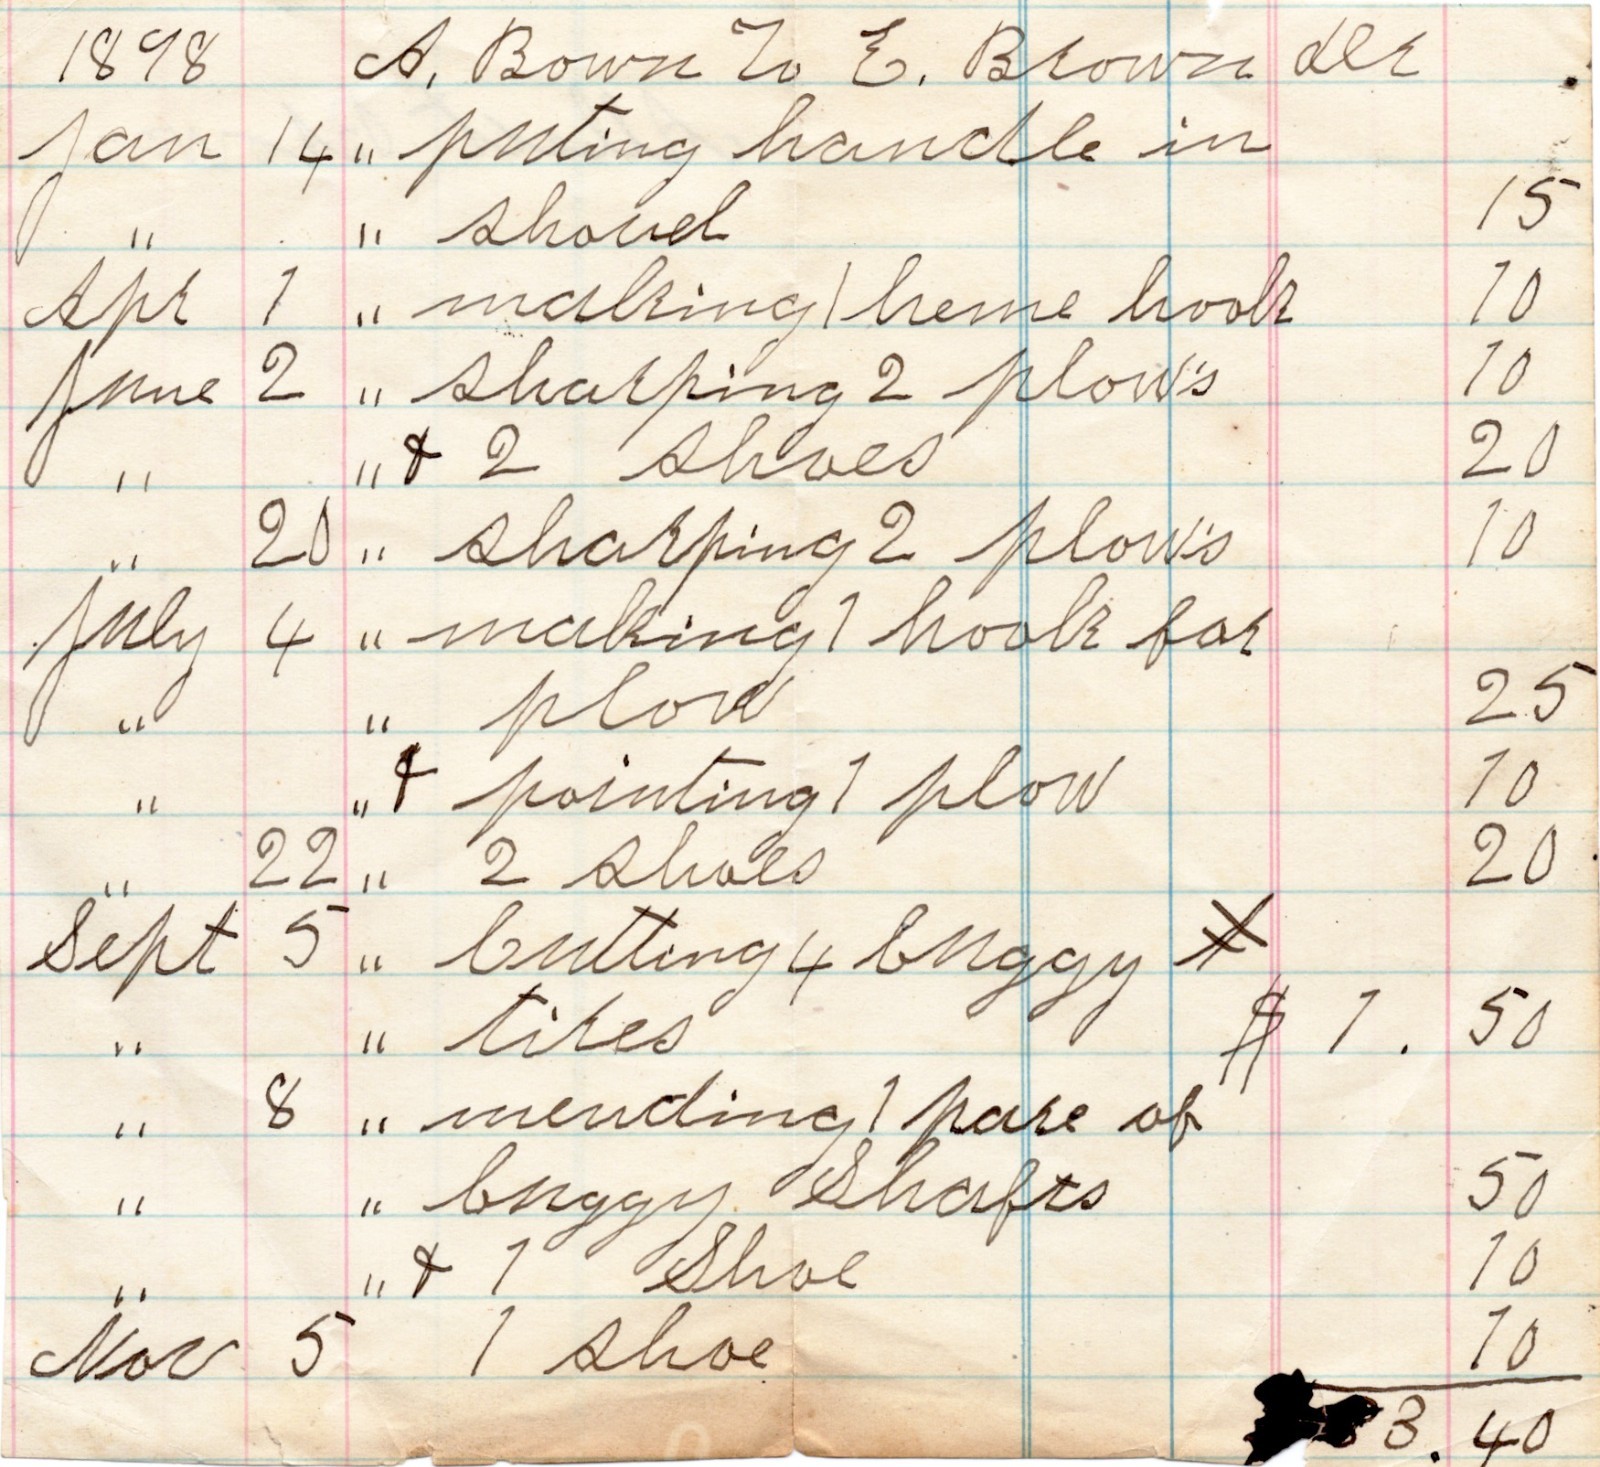 1898 A. Bown To E. Brown Dr
Jan 14 " puting handle in
" " shovel 15
Apr 1 " making 1 heme hook 10
June 2 " sharping 2 plow's 10
" " & 2 shoes 20
" 20 " sharping 2 plow's 10
July 4 " making 1 hook for
" " plow 25
" " & pointing 1 plow 10
" 22 " 2 shoes 20
Sept 5 " cutting 4 buggy
" " tires $ 1.50
" 8 " mending 1 pare of
" " buggy Shafts 50
" " & 1 Shoe 10
Nov 5 1 shoe 10
3.40